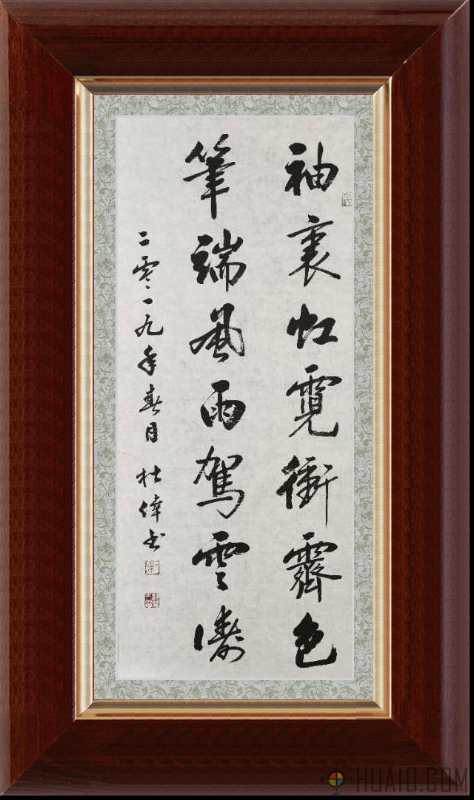 袖裏虹霓衝霽色
筆端風雨駕雲濤
二零一九年春月 杜偉书